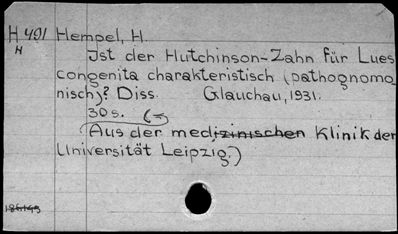 H 491 Hempel, H.
H
Ist der Hutchinson-Zahn für Lues
congenita charakteristisch (pathognomo=
nisch)? Diss. Glauchau, 1931.
30 s. (=
(Aus der medizinischen Klinik der
Universität Leipzig.)